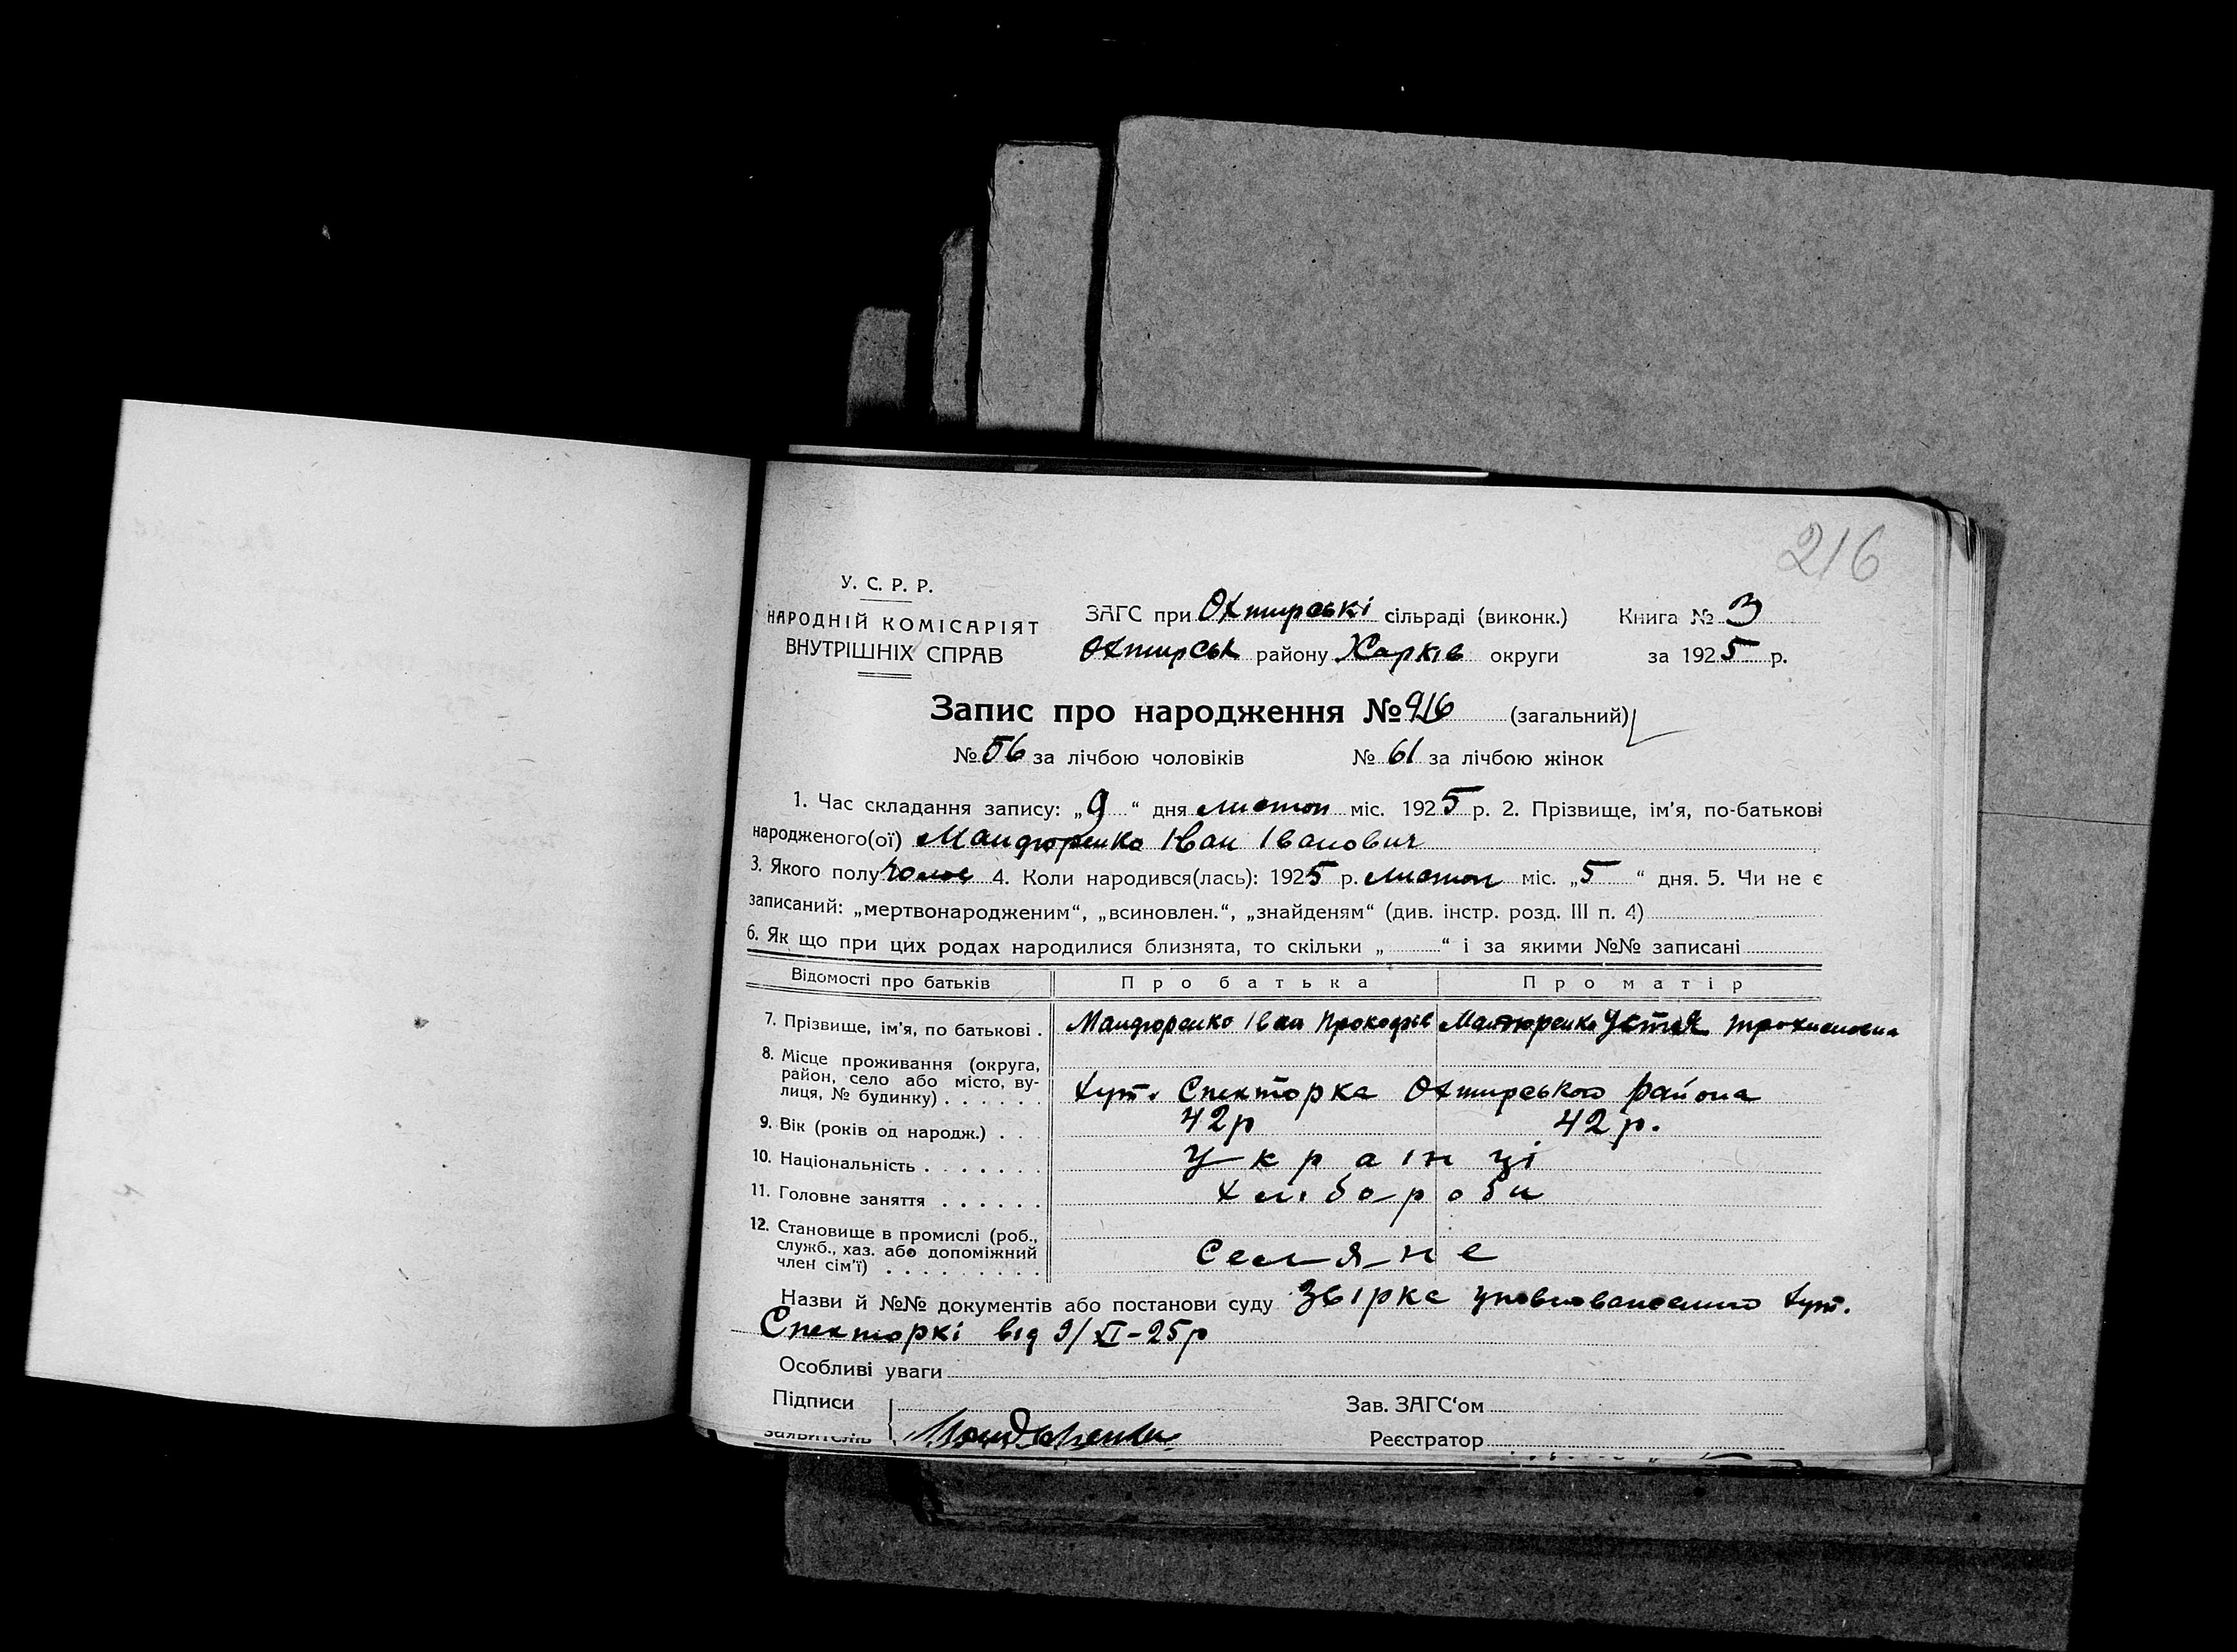 216
У. С. Р. Р.
НАРОДНІЙ КОМІСАРІЯТ
ВНУТРІШНІХ СПРАВ
ЗАГС при Охтирські сільраді (виконк.) Книга № 3
Охтирськ району Харків округи за 1925 р.
Запис про народження № 916 (загальний)
№ 56 за лічбою чоловіків № 61 за лічбою жінок
1. Час складання запису: „9“ дня листоп міс. 1925 р. 2. Прізвище, ім'я, по-батькові
народженого(ої) Мандюренко Іван Іванович
3. Якого полу 4. Коли народився(лась): 1925 р. листоп міс. „5“ дня. 5. Чи не є
записаний: „мертвонародженим“, „всиновлен.“, „знайденям“ (див. інстр. розд. III п. 4)
6. Як що при цих родах народилися близнята, то скільки „ “ і за якими №№ записані
Відомості про батьків Про батька Про матір
7. Прізвище, ім'я, по батькові . Мандюренко Іван Прокофів Мандюренко Устя
8. Місце проживання (округа,
район, село або місто, ву-
лиця, № будинку) . . . . . . хут. Спекторка Охтирського района
9. Вік (років од народж.) . . . 42р 42 р.
10. Національність . . . . . . . Українці
11. Головне заняття . . . . . . хлібороби
12. Становище в промислі (роб.,
служб., хаз. або допоміжний
член сім'ї) . . . . . . . . . селяне
Назви й №№ документів або постанови суду Звірка хут.
Спекторкі від 9/XI-25р
Особливі уваги
Підписи Зав. ЗАГС'ом
заявителів Реєстратор